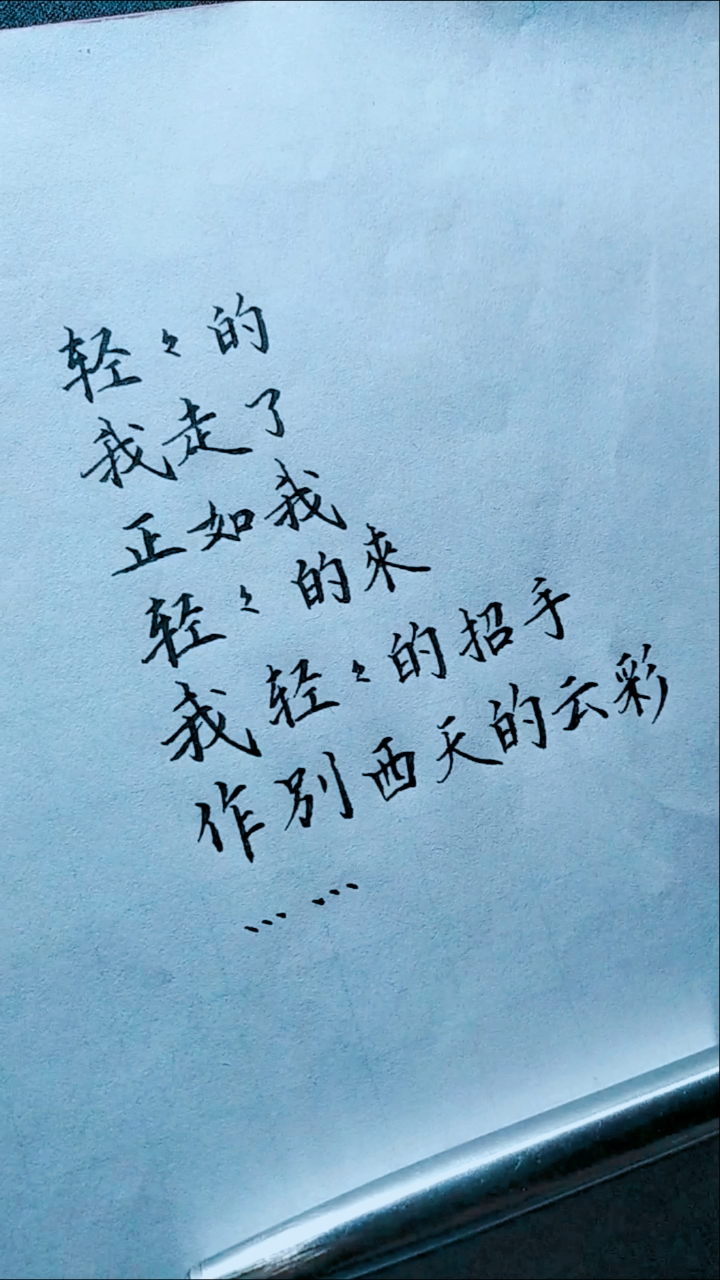 轻々的
我走了
正如我
轻々的來
我轻々的招手
作别西天的云彩
……